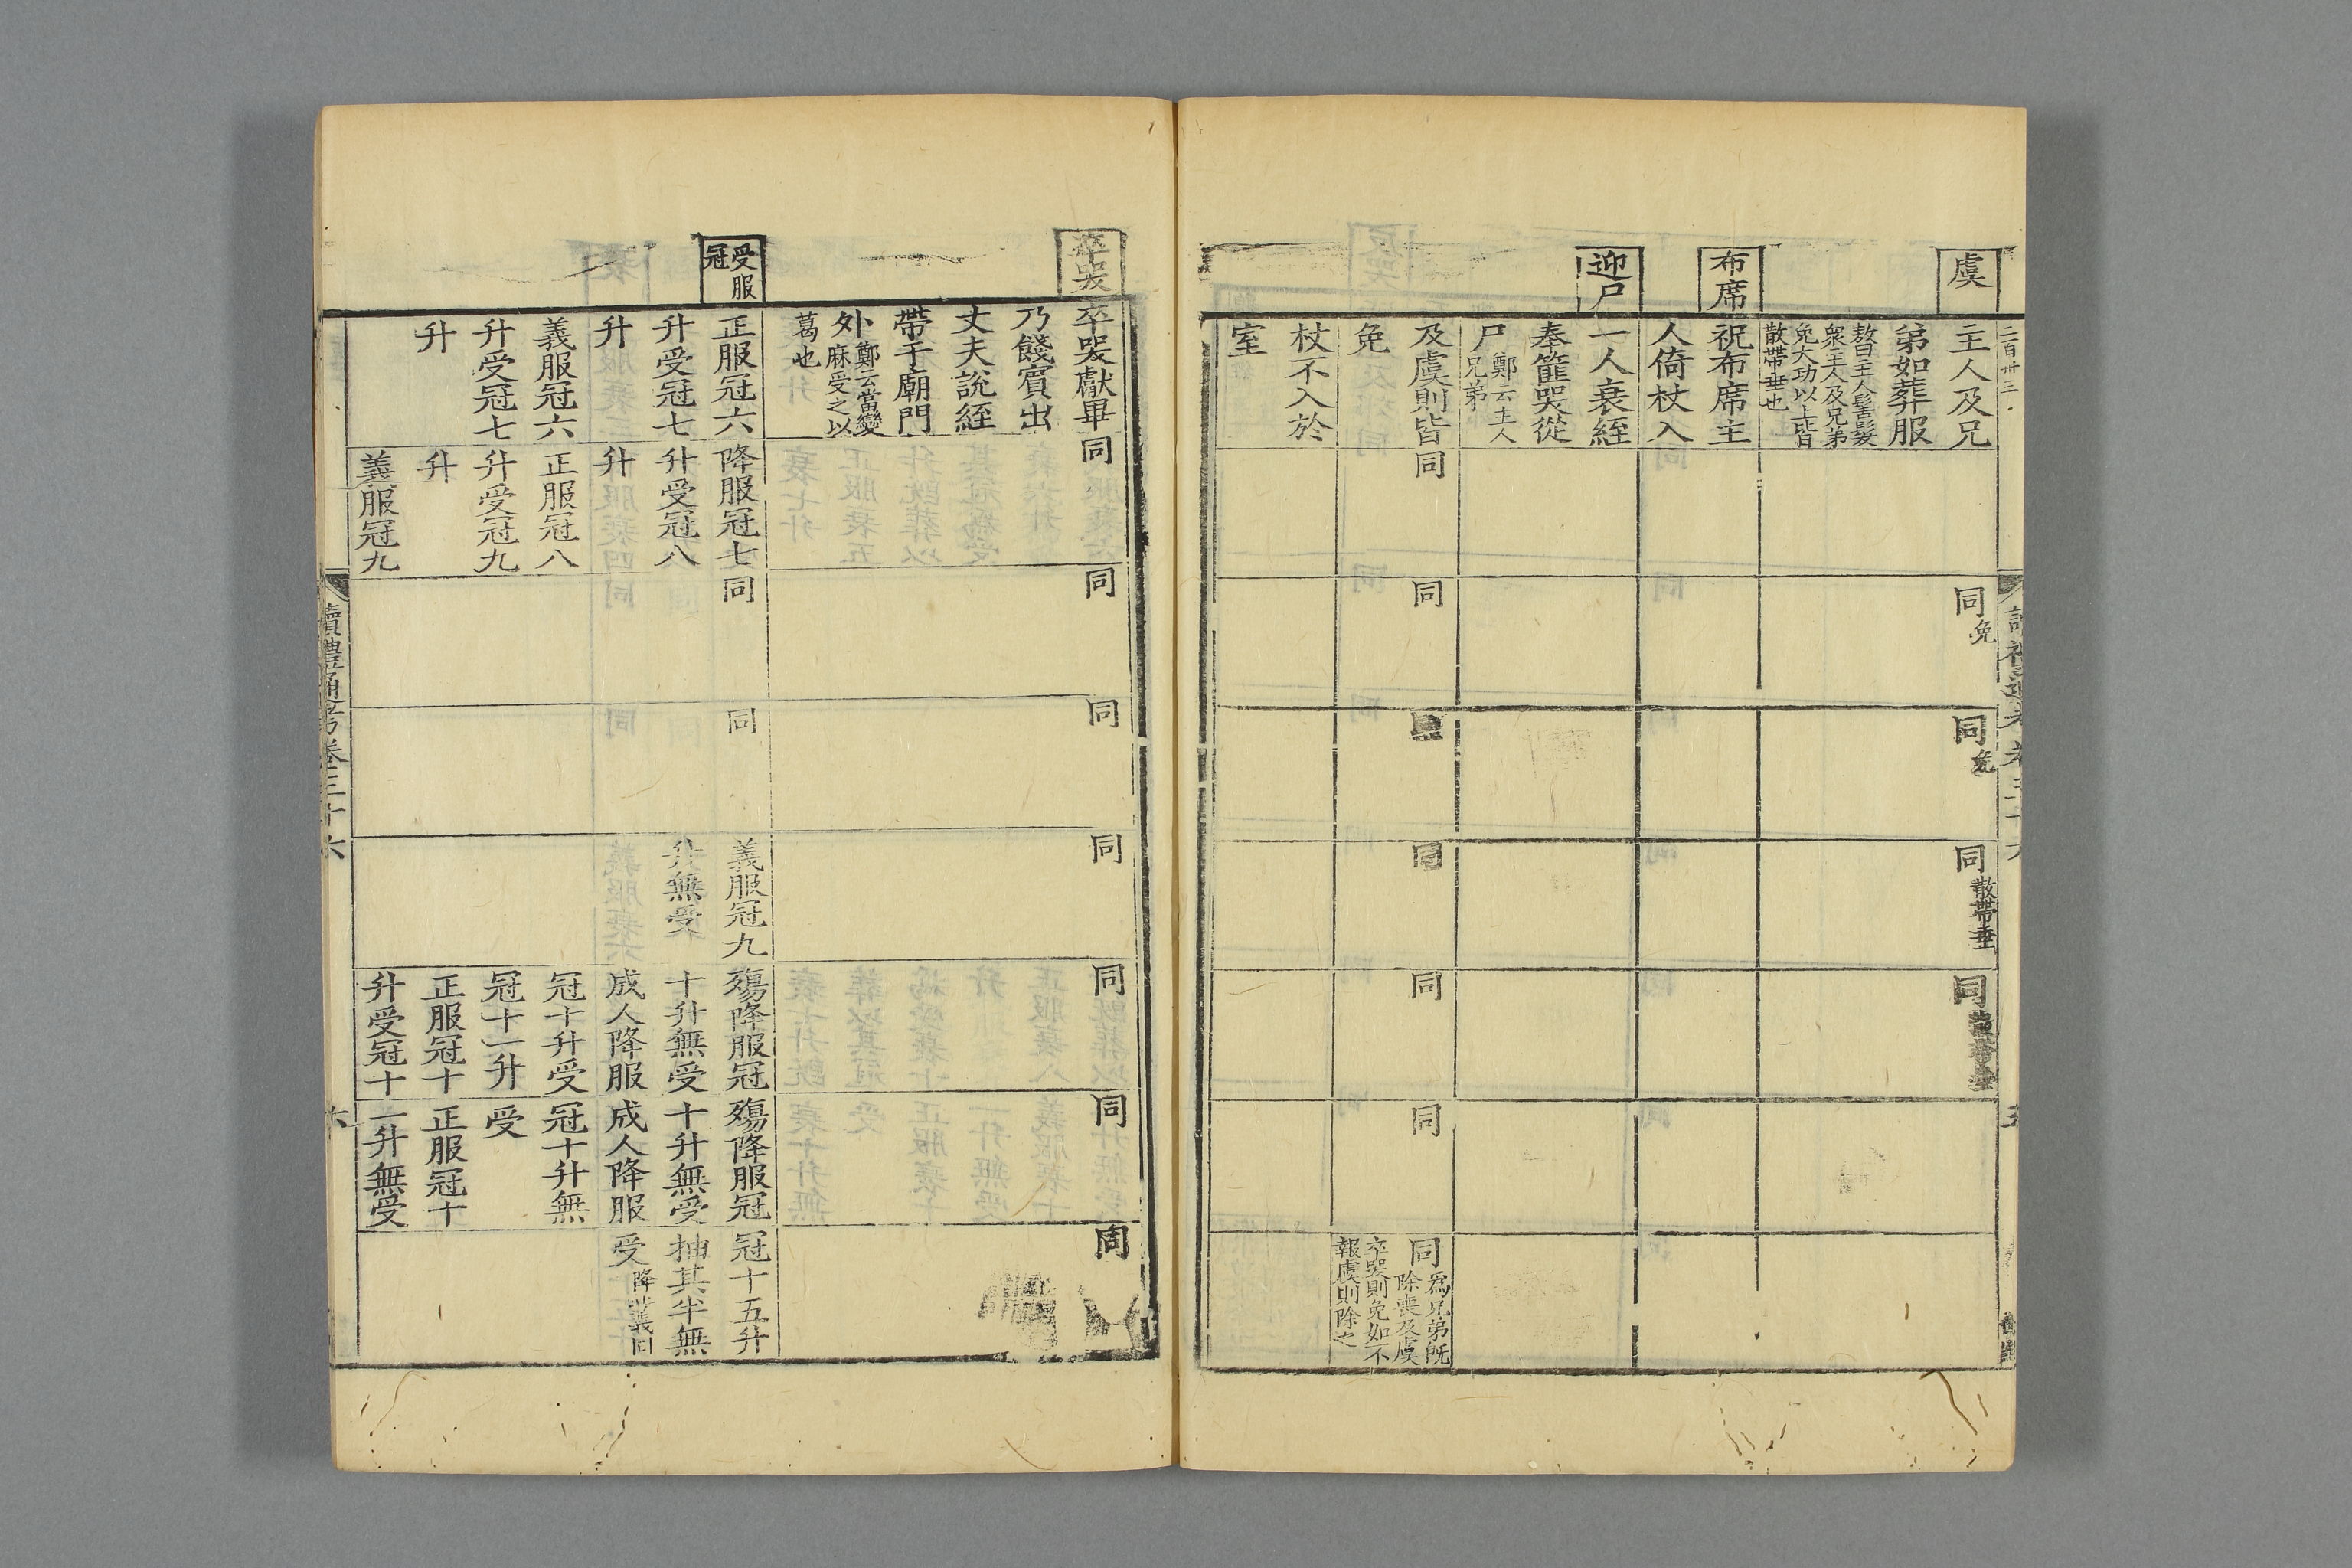 二百卅三
虞
主人及兄
弟如葬服
敖曰主人髺髮
衆主人及兄弟
免大功以上皆
散帶垂也
同免
同免
同散帶垂
同散帶垂
布席
祝布席主
人倚杖入
迎尸
一人衰絰
奉篚哭從
尸鄭云主人
兄弟
及虞則皆
免
同
同
同
同
同
同
同爲兄弟旣
除喪及虞
卒哭則免如不
報虞則除之
杖不入於
室
卒哭
卒哭獻畢
乃餞賓出
丈夫說絰
帶于廟門
外鄭云當變
麻受之以
葛也
同
同
同
同
同
同
同
受服
冠
正服冠六
升受冠七
升
義服冠六
升受冠七
升
降服冠七
升受冠八
升
正服冠八
升受冠九
升
義服冠九
同
同
義服冠九
升無受
殤降服冠
十升無受
成人降服
冠十升受
冠十一升
正服冠十
升受冠十
殤降服冠
十升無受
成人降服
冠十升無
受
正服冠十
一升無受
冠十五升
抽其半無
受降正義同
讀禮通考卷三十六
六